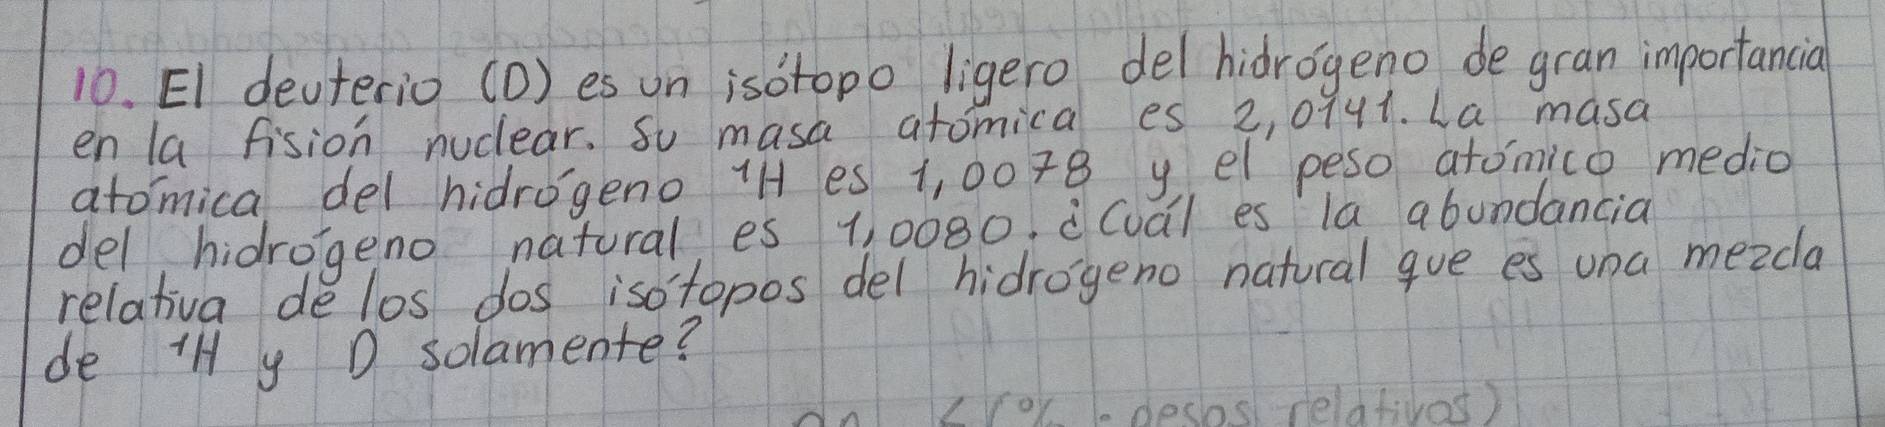 10. El deuterio (D) es un isótopo ligero del hidrógeno de gran importancia
en la fisión nuclear. Su masa atómica es 2,0141. La masa
atómica del hidrógeno ¹H es 1,0078 y el peso atómico medio
del hidrógeno natural es 1,0080. ¿Cuál es la abundancia
relativa de los dos isótopos del hidrógeno natural que es una mezcla
de ¹H y D solamente?
pesos relativos)